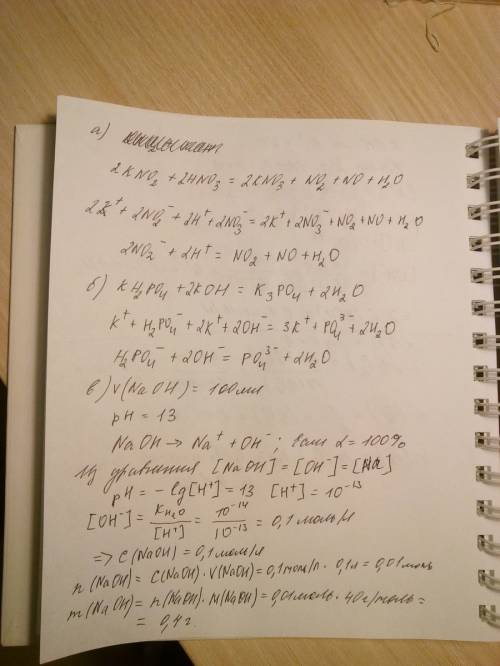 а)
2KNO₂ + 2HNO₃ = 2KNO₃ + NO₂ + NO + H₂O
2K⁺ + 2NO₂⁻ + 2H⁺ + 2NO₃⁻ = 2K⁺ + 2NO₃⁻ + NO₂ + NO + H₂O
2NO₂⁻ + 2H⁺ = NO₂ + NO + H₂O
б) KH₂PO₄ + 2KOH = K₃PO₄ + 2H₂O
K⁺ + H₂PO₄⁻ + 2K⁺ + 2OH⁻ = 3K⁺ + PO₄³⁻ + 2H₂O
H₂PO₄⁻ + 2OH⁻ = PO₄³⁻ + 2H₂O
в) V(NaOH) = 100 мл
pH = 13
NaOH → Na⁺ + OH⁻ ; если α = 100%
Из уравнения [NaOH] = [OH⁻] = [Na]
pH = -lg[H⁺] = 13 [H⁺] = 10⁻¹³
[OH⁻] = K H₂O / [H⁺] = 10⁻¹⁴ / 10⁻¹³ = 0,1 моль/л
=> C(NaOH) = 0,1 моль/л
n(NaOH) = C(NaOH) · V(NaOH) = 0,1 моль/л · 0,1 л = 0,01 моль
m(NaOH) = n(NaOH) · M(NaOH) = 0,01 моль · 40 г/моль =
= 0,4 г.